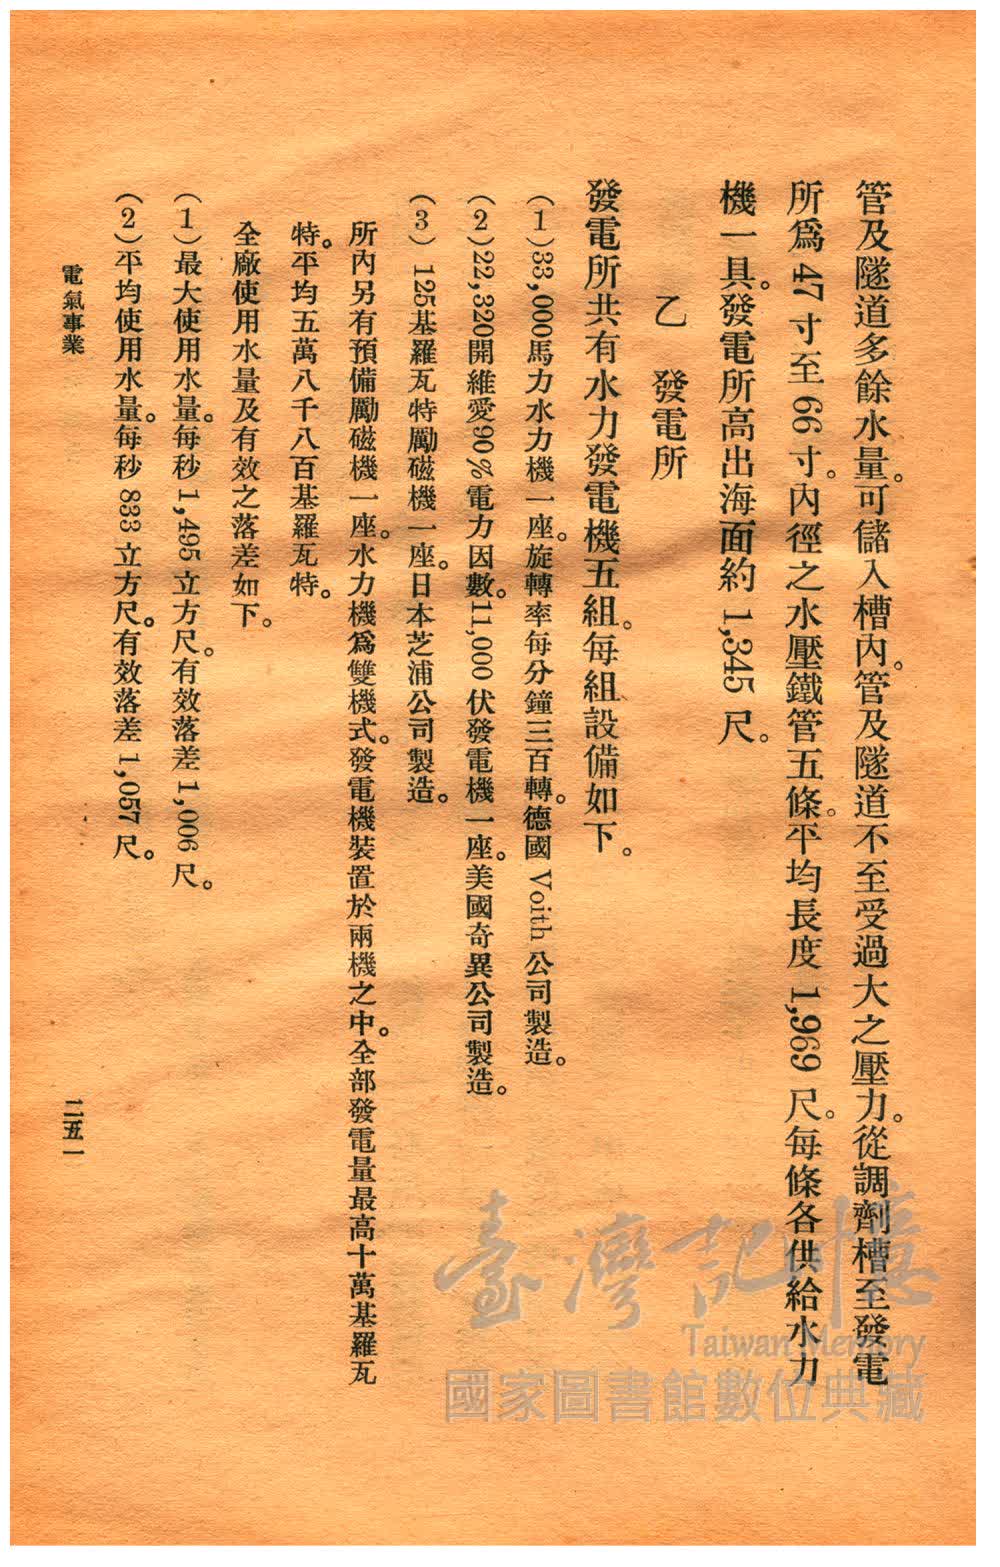 管及隧道多餘水量。可儲入槽內。管及隧道不至受過大之壓力。從調劑槽至發電
所爲 47 寸至 66 寸。內徑之水壓鐵管五條。平均長度 1,969 尺。每條各供給水力
機一具。發電所高出海面約 1,345 尺。
乙　發電所
發電所共有水力發電機五組。每組設備如下。
(1)33,000馬力水力機一座。旋轉率每分鐘三百轉。德國 Voith 公司製造。
(2)22,320開維愛90%電力因數。11,000 伏發電機一座。美國奇異公司製造。
(3) 125基羅瓦特勵磁機一座。日本芝浦公司製造。
所內另有預備勵磁機一座。水力機爲雙機式。發電機裝置於兩機之中。全部發電量最高十萬基羅瓦
特。平均五萬八千八百基羅瓦特。
全廠使用水量及有效之落差如下。
(1)最大使用水量。每秒 1,495 立方尺。有效落差 1,006 尺。
(2)平均使用水量。每秒 833 立方尺。有效落差 1,057 尺。
電氣事業
二五一
臺灣記憶
Taiwan Memory
國家圖書館數位典藏